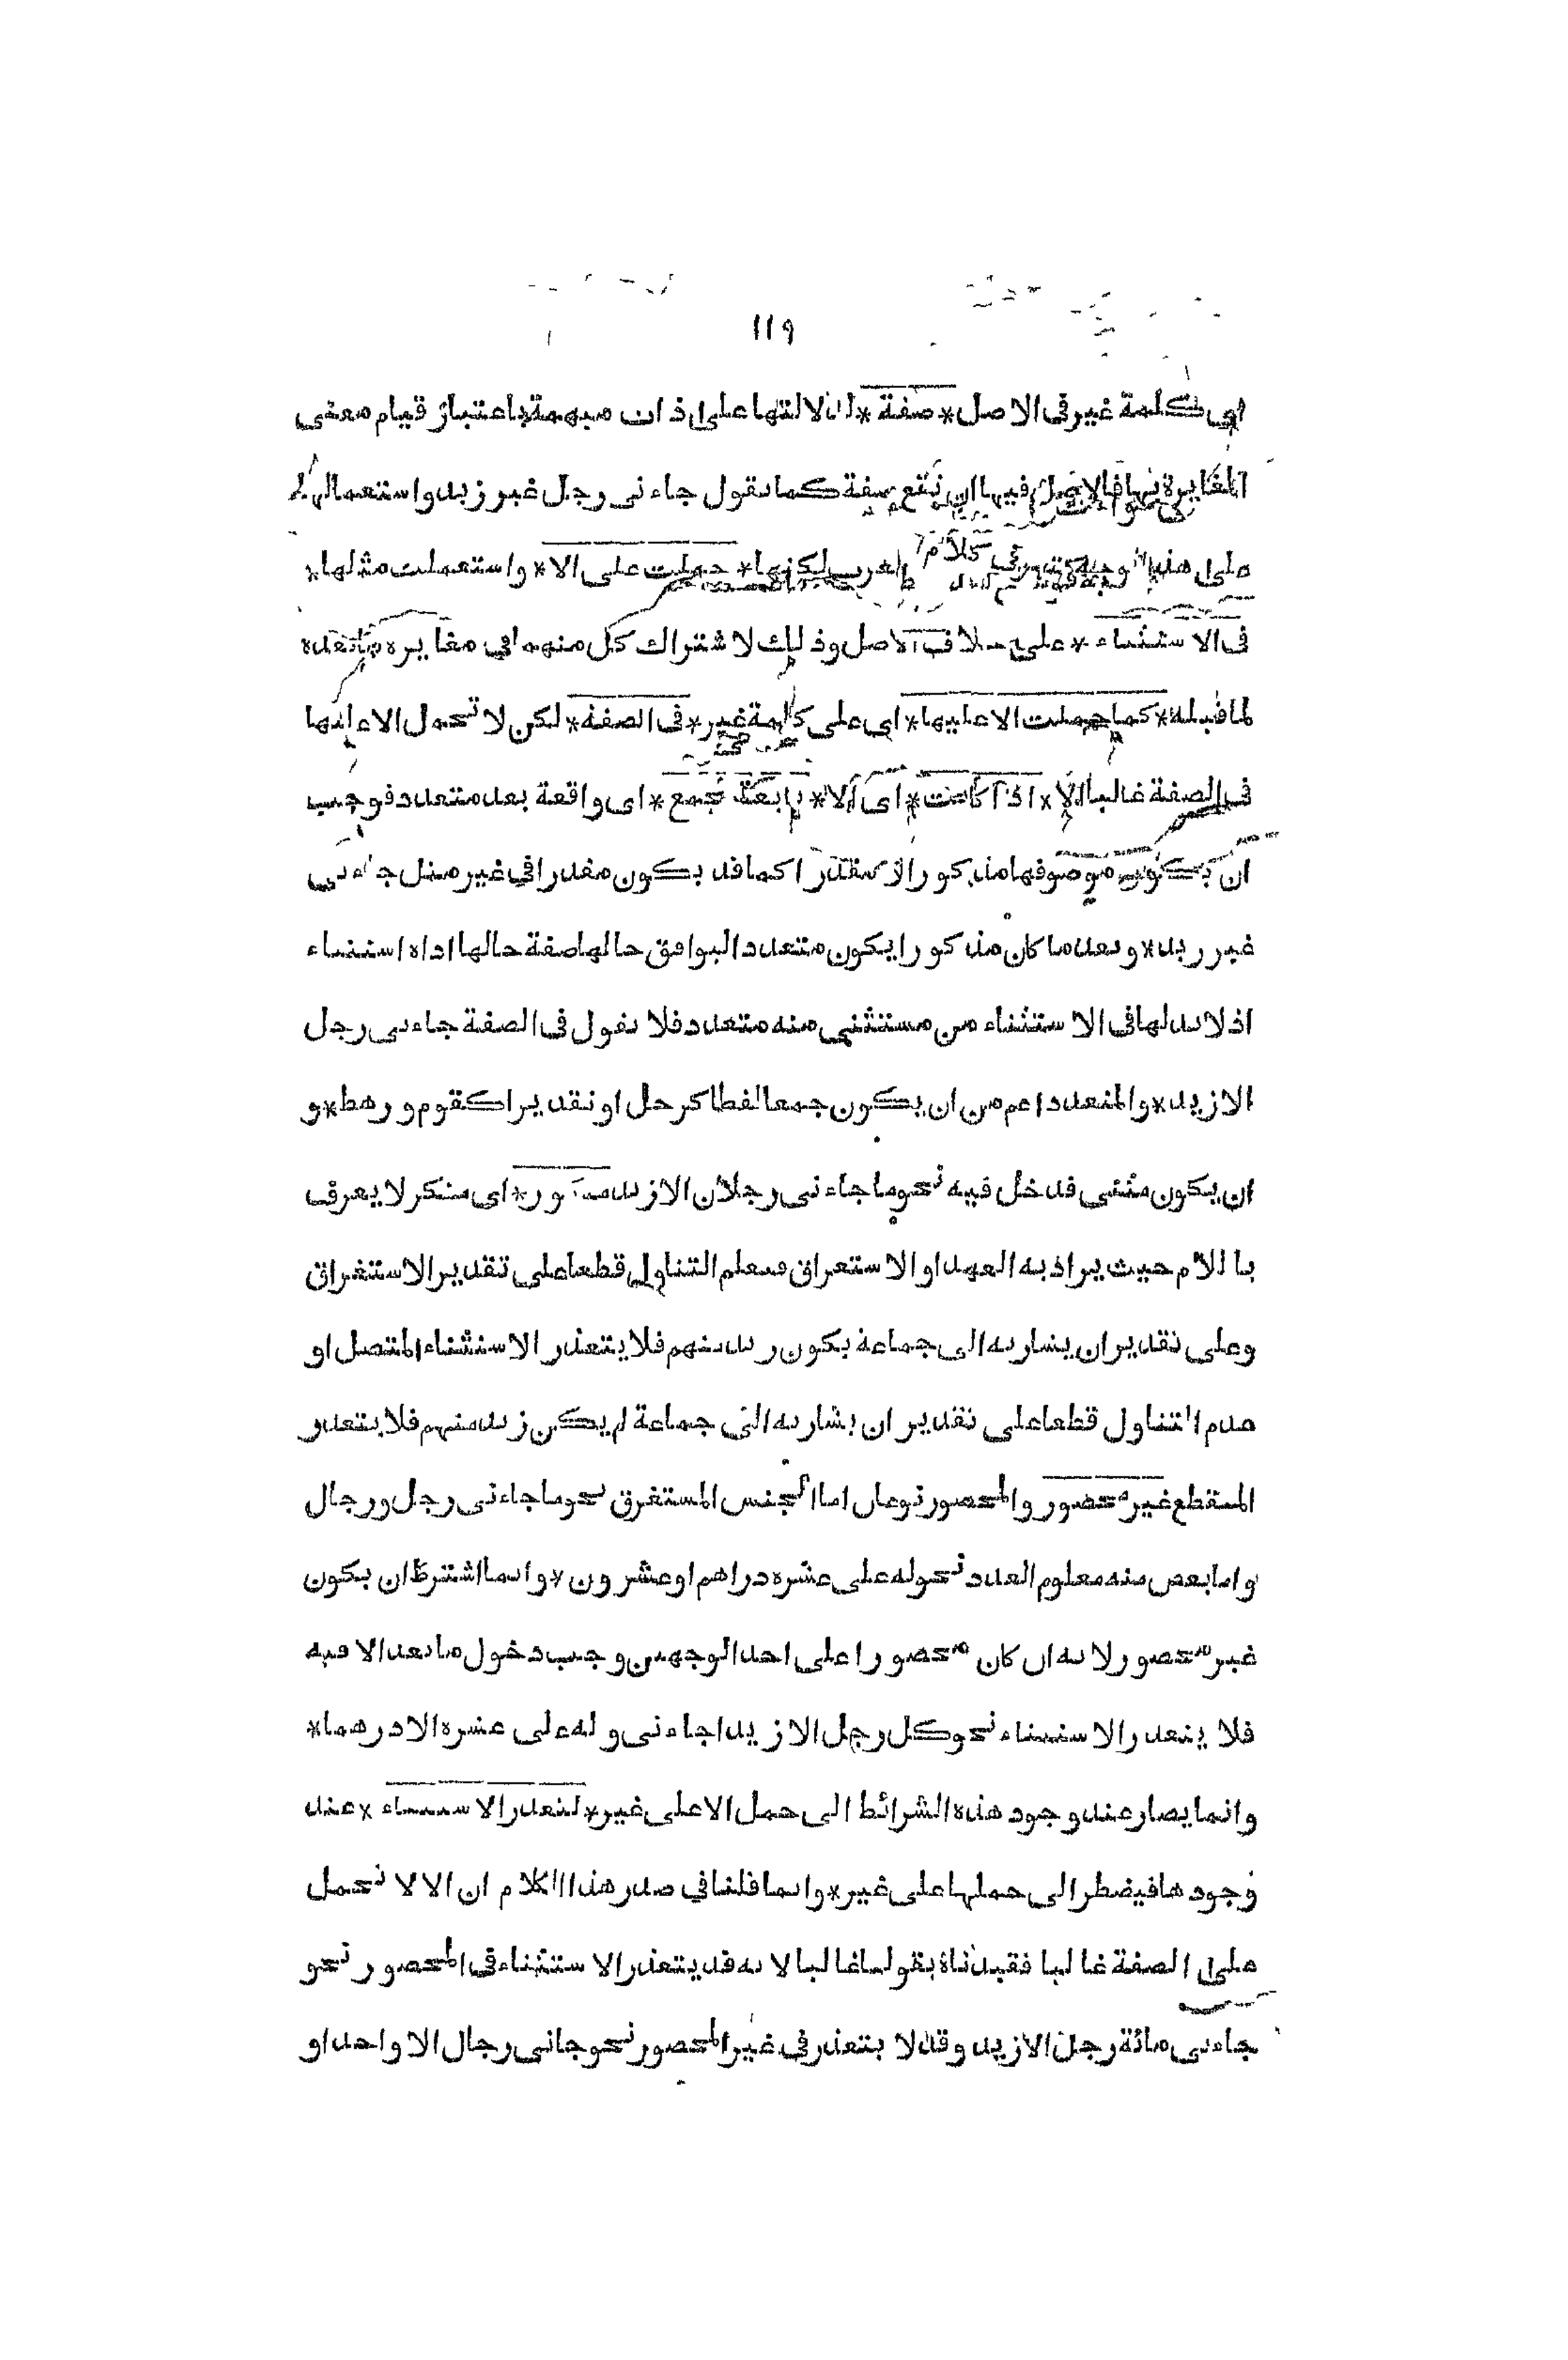 ١١٩
اى كلمة غير فى الاصل * صفة * لدلالتها على ذات مبهمة باعتبار قيام معنى
المغايرة بها فالاصل فيها ان تقع صفة كما تقول جاءنى رجل غير زيد واستعمالها
على هذا الوجه كثير فى كلام العرب لكنها * حملت على الا * واستعملت مثلها *
فى الاستثناء * على خلاف الاصل وذلك لاشتراك كل منهما فى مغايرة ما بعده
لما قبله * كما حملت الا عليها * اى على كلمة غير * فى الصفة * لكن لا تحمل الا عليها
فى الصفة غالبا الا * اذا كانت * اى الا * تابعة لجمع * اى واقعة بعد متعدد فوجب
ان يكون موصوفها مذكورا لا مقدرا كما قد يكون مقدرا فى غير مثل جاءنى
غير زيد * وبعد ما كان مذكورا يكون متعددا ليوافق حالها صفة حالها اداة استثناء
اذ لا بد لها فى الاستثناء من مستثنى منه متعدد فلا تقول فى الصفة جاءنى رجل
الا زيد * والمتعدد اعم من ان يكون جمعا لفظا كرجال او تقديرا كقوم ورهط * و
ان يكون مثنى فدخل فيه نحو ما جاءنى رجلان الا زيد منكور * اى منكر لا يعرف
باللام حيث يراد به العهد او الاستغراق فيعلم التناول قطعا على تقدير الاستغراق
وعلى تقدير ان يشار به الى جماعة يكون زيد منهم فلا يتعذر الاستثناء المتصل او
عدم التناول قطعا على تقدير ان يشار به الى جماعة لم يكن زيد منهم فلا يتعذر
المنقطع غير محصور والمحصور نوعان اما الجنس المستغرق نحو ما جاءنى رجل ورجال
واما بعض منه معلوم العدد نحو له على عشرة دراهم او عشرون * وانما اشترط ان يكون
غير محصور لانه ان كان محصورا على احد الوجهين وجب دخول ما بعد الا فيه
فلا يتعذر الاستثناء نحو كل رجل الا زيدا جاءنى وله على عشرة الا درهما *
وانما يصار عند وجود هذه الشرائط الى حمل الا على غير * لتعذر الاستثناء * عند
وجودها فيضطر الى حملها على غير * وانما قلنا فى صدر هذا الكلام ان الا لا تحمل
على الصفة غالبا فقيدناه بقولنا غالبا لانه قد يتعذر الاستثناء فى المحصور نحو
جاءنى مائة رجل الا زيد وقد لا يتعذر فى غير المحصور نحو جانى رجال الا واحد او